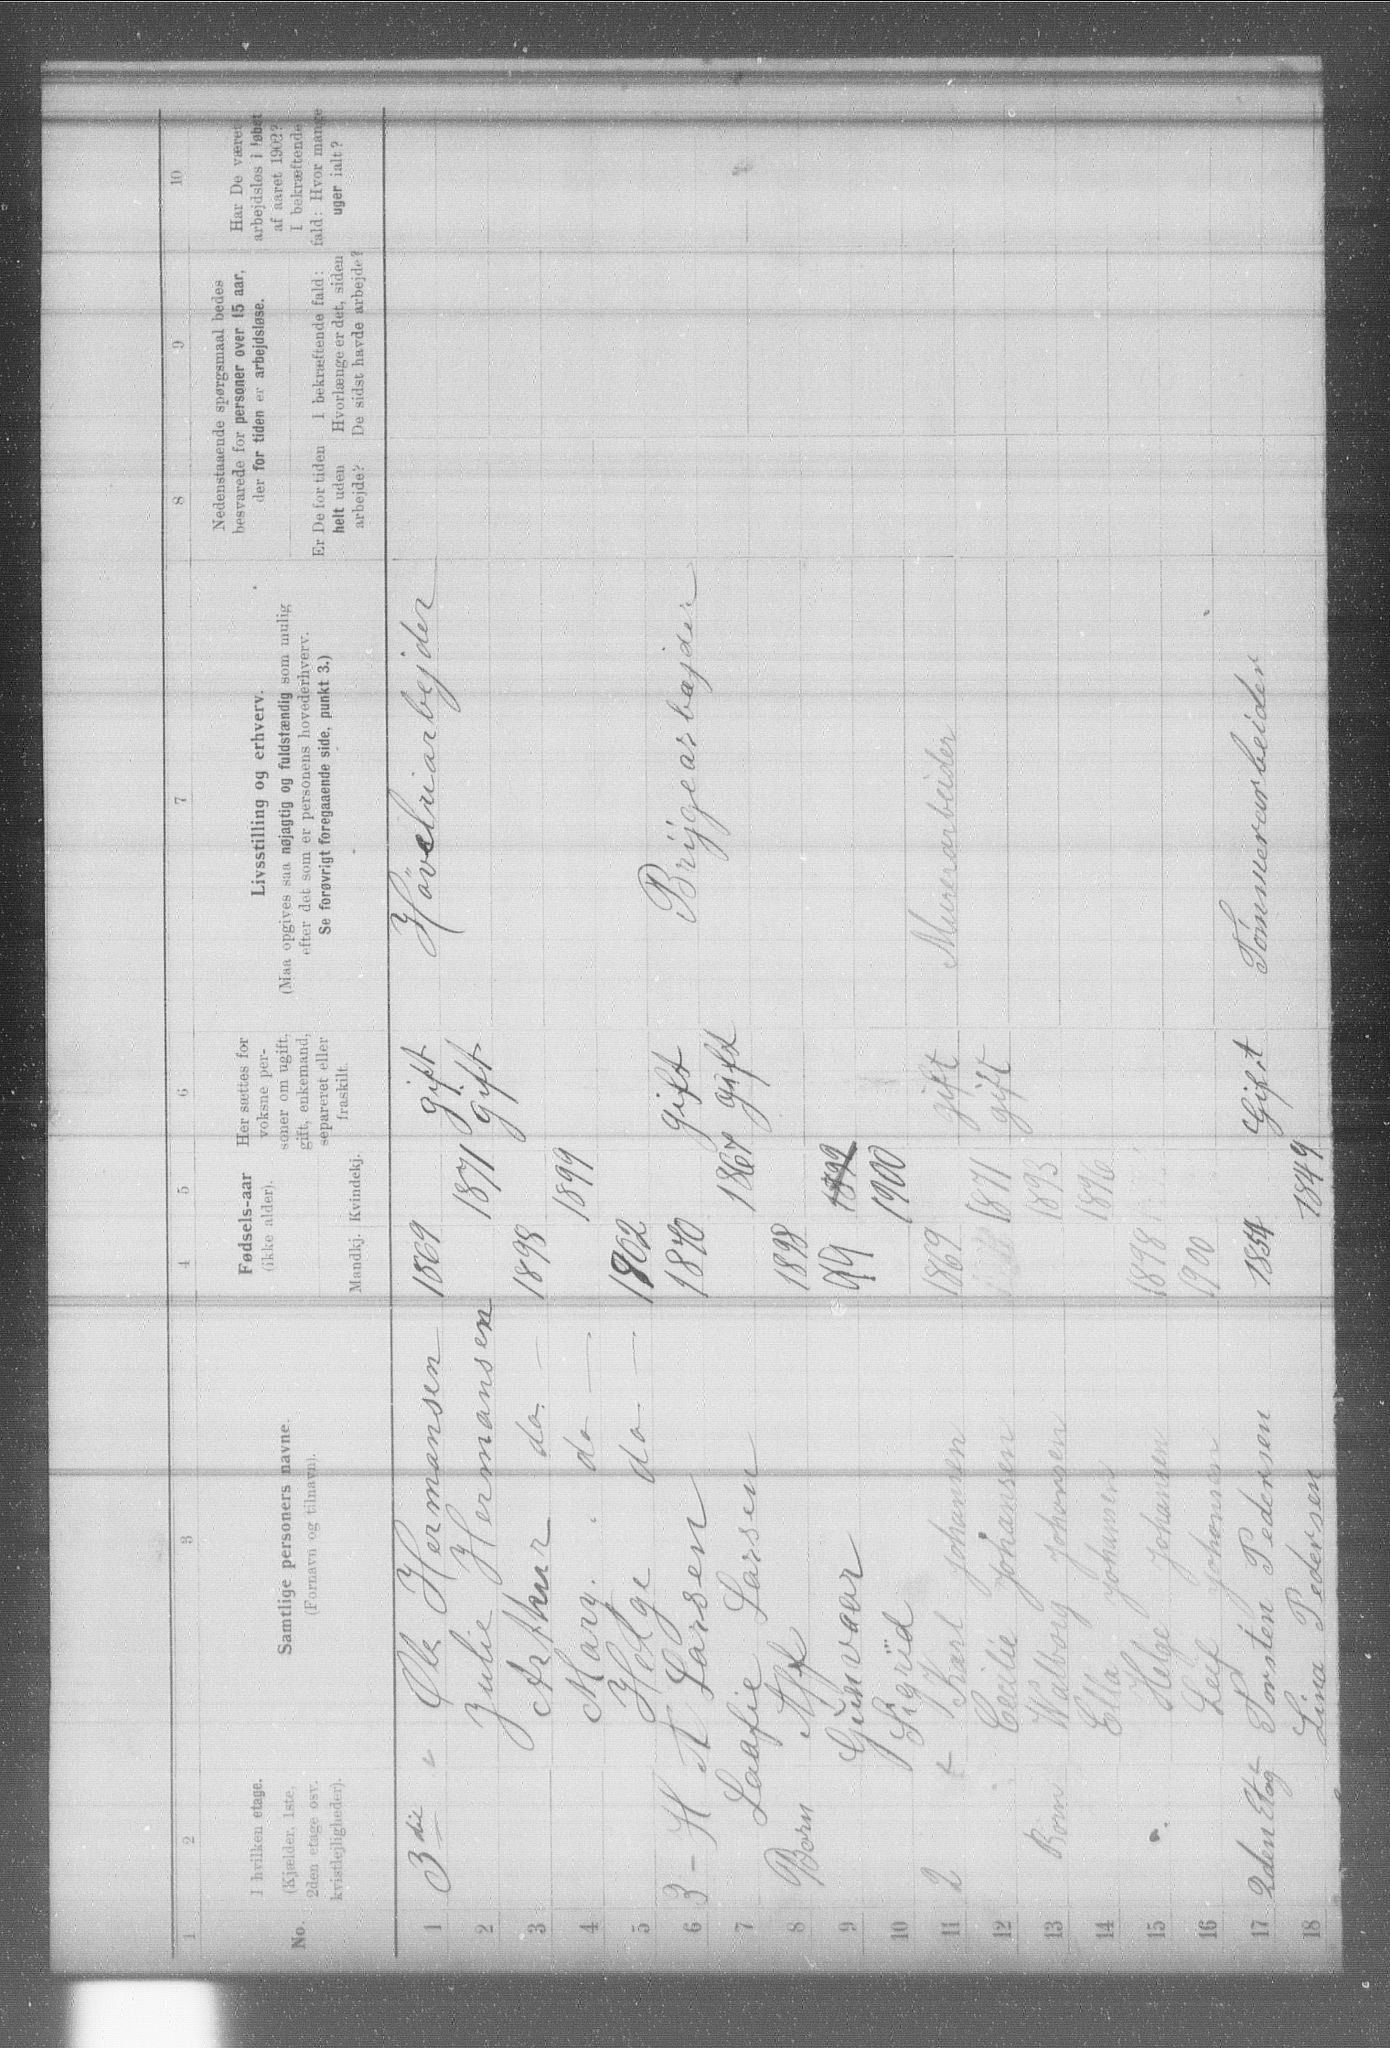 1 2 3 4 5 6 7 8 9 10
No.
I hvilken etage.
(Kjælder, 1ste,
2den etage osv.
kvistlejligheder).
Samtlige personers navne.
(Fornavn og tilnavn).
Fødsels-aar
(ikke alder).
Mandkj. Kvindekj.
Her sættes for
voksne per-
soner om ugift,
gift, enkemand,
separeret eller
fraskilt.
Livsstilling og erhverv.
(Maa opgives saa nøjagtig og fuldstændig som mulig
efter det som er personens hovederhverv.
Se forøvrigt foregaaende side, punkt 3.)
Nedenstaaende spørgsmaal bedes
besvarede for personer over 15 aar,
der for tiden er arbejdsløse.
Er De for tiden
helt uden
arbejde?
I bekræftende fald:
Hvorlænge er det, siden
De sidst havde arbejde?
Har De været
arbejdsløs i løbet
af aaret 1902?
I bekræftende
fald: Hvor mange
uger ialt?
1 3die Ole Hermansen 1869 gift Hövelriarbejder
2 Julie Hermansen 1871 gift
3 Arthur do. — 1898
4 Mary. do — 1899
5 Helge do — 1902
6 3 - H. A Larsen 1870 gift Bryggearbejder
7 Laafie Larsen 1867 gift
8 Børn Alf 1898
9 Gunvaar 99 1899
10 Sigrid 1900
11 2 t Karl Johansen 1869 gift Murerarbeider
12 Cecilie Johansen 1871 gift
13 Børn Walborg Johansen 1893
14 Ella Johansen 1896
15 Helge Johansen 1898
16 Leif Johansen 1900
17 2den Etag Torsten Pedersen 1854 Gift Tømmerarbeider
18 Lina Pedersen 1849